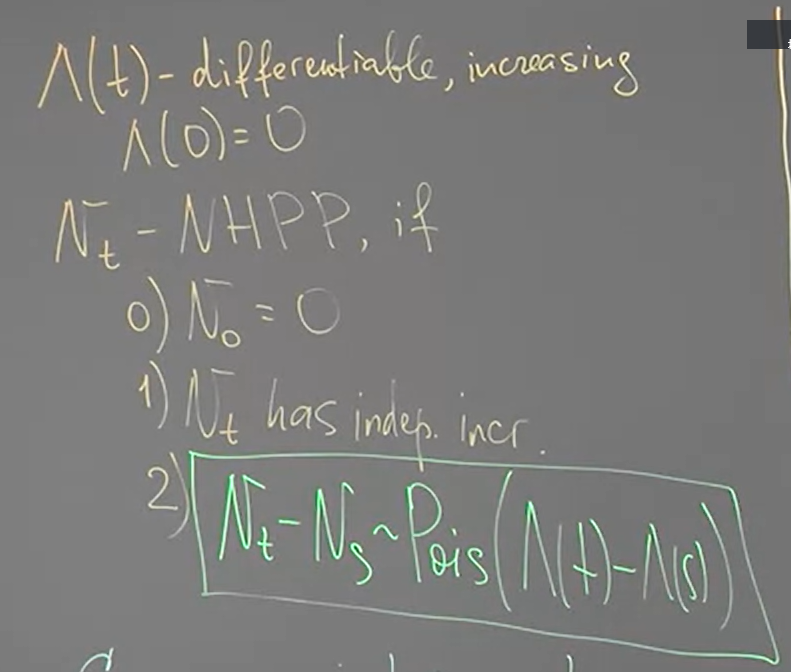 Λ(t) - differentiable, increasing
Λ(0) = 0
N_t - NHPP, if
0) N_0 = 0
1) N_t has indep. incr.
2) N_t - N_s ~ Pois(Λ(t) - Λ(s))